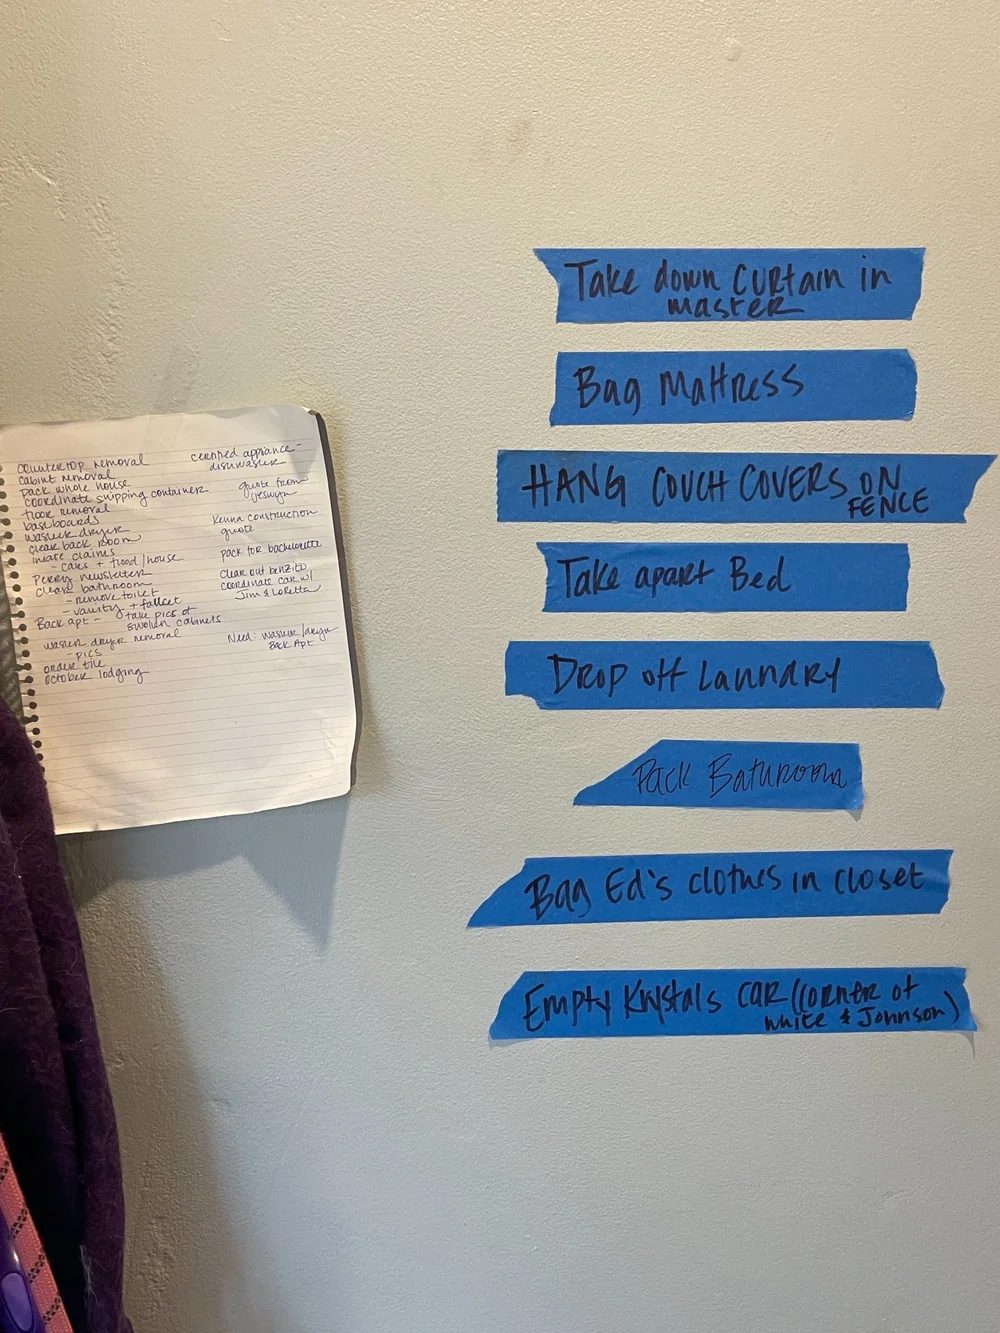 countertop removal
cabint removal
pack whole house
coordinate shipping container
floor removal
baseboards
washer dryer
clear back room
initate claims
- cars + flood/house
Perry newsletter
clear bathroom
- remove toilet
- vanity + faucet
Back apt - take pics of
swollen cabinets
washer dryer removal
- pics
order tile
october lodging
certified appliance -
dishwasher
quote from
Kenna construction
quote
pack for bachelorette
Clear out benzito
coordinate car w/
Jim & Loretta
Need: washer/dryer
Back Apt
Take down curtain in
master
Bag Mattress
HANG COUCH COVERS ON
FENCE
Take apart Bed
Drop off Laundry
Pack Bathroom
Bag Ed's clothes in closet
Empty Krystals car (corner of
white & Johnson)